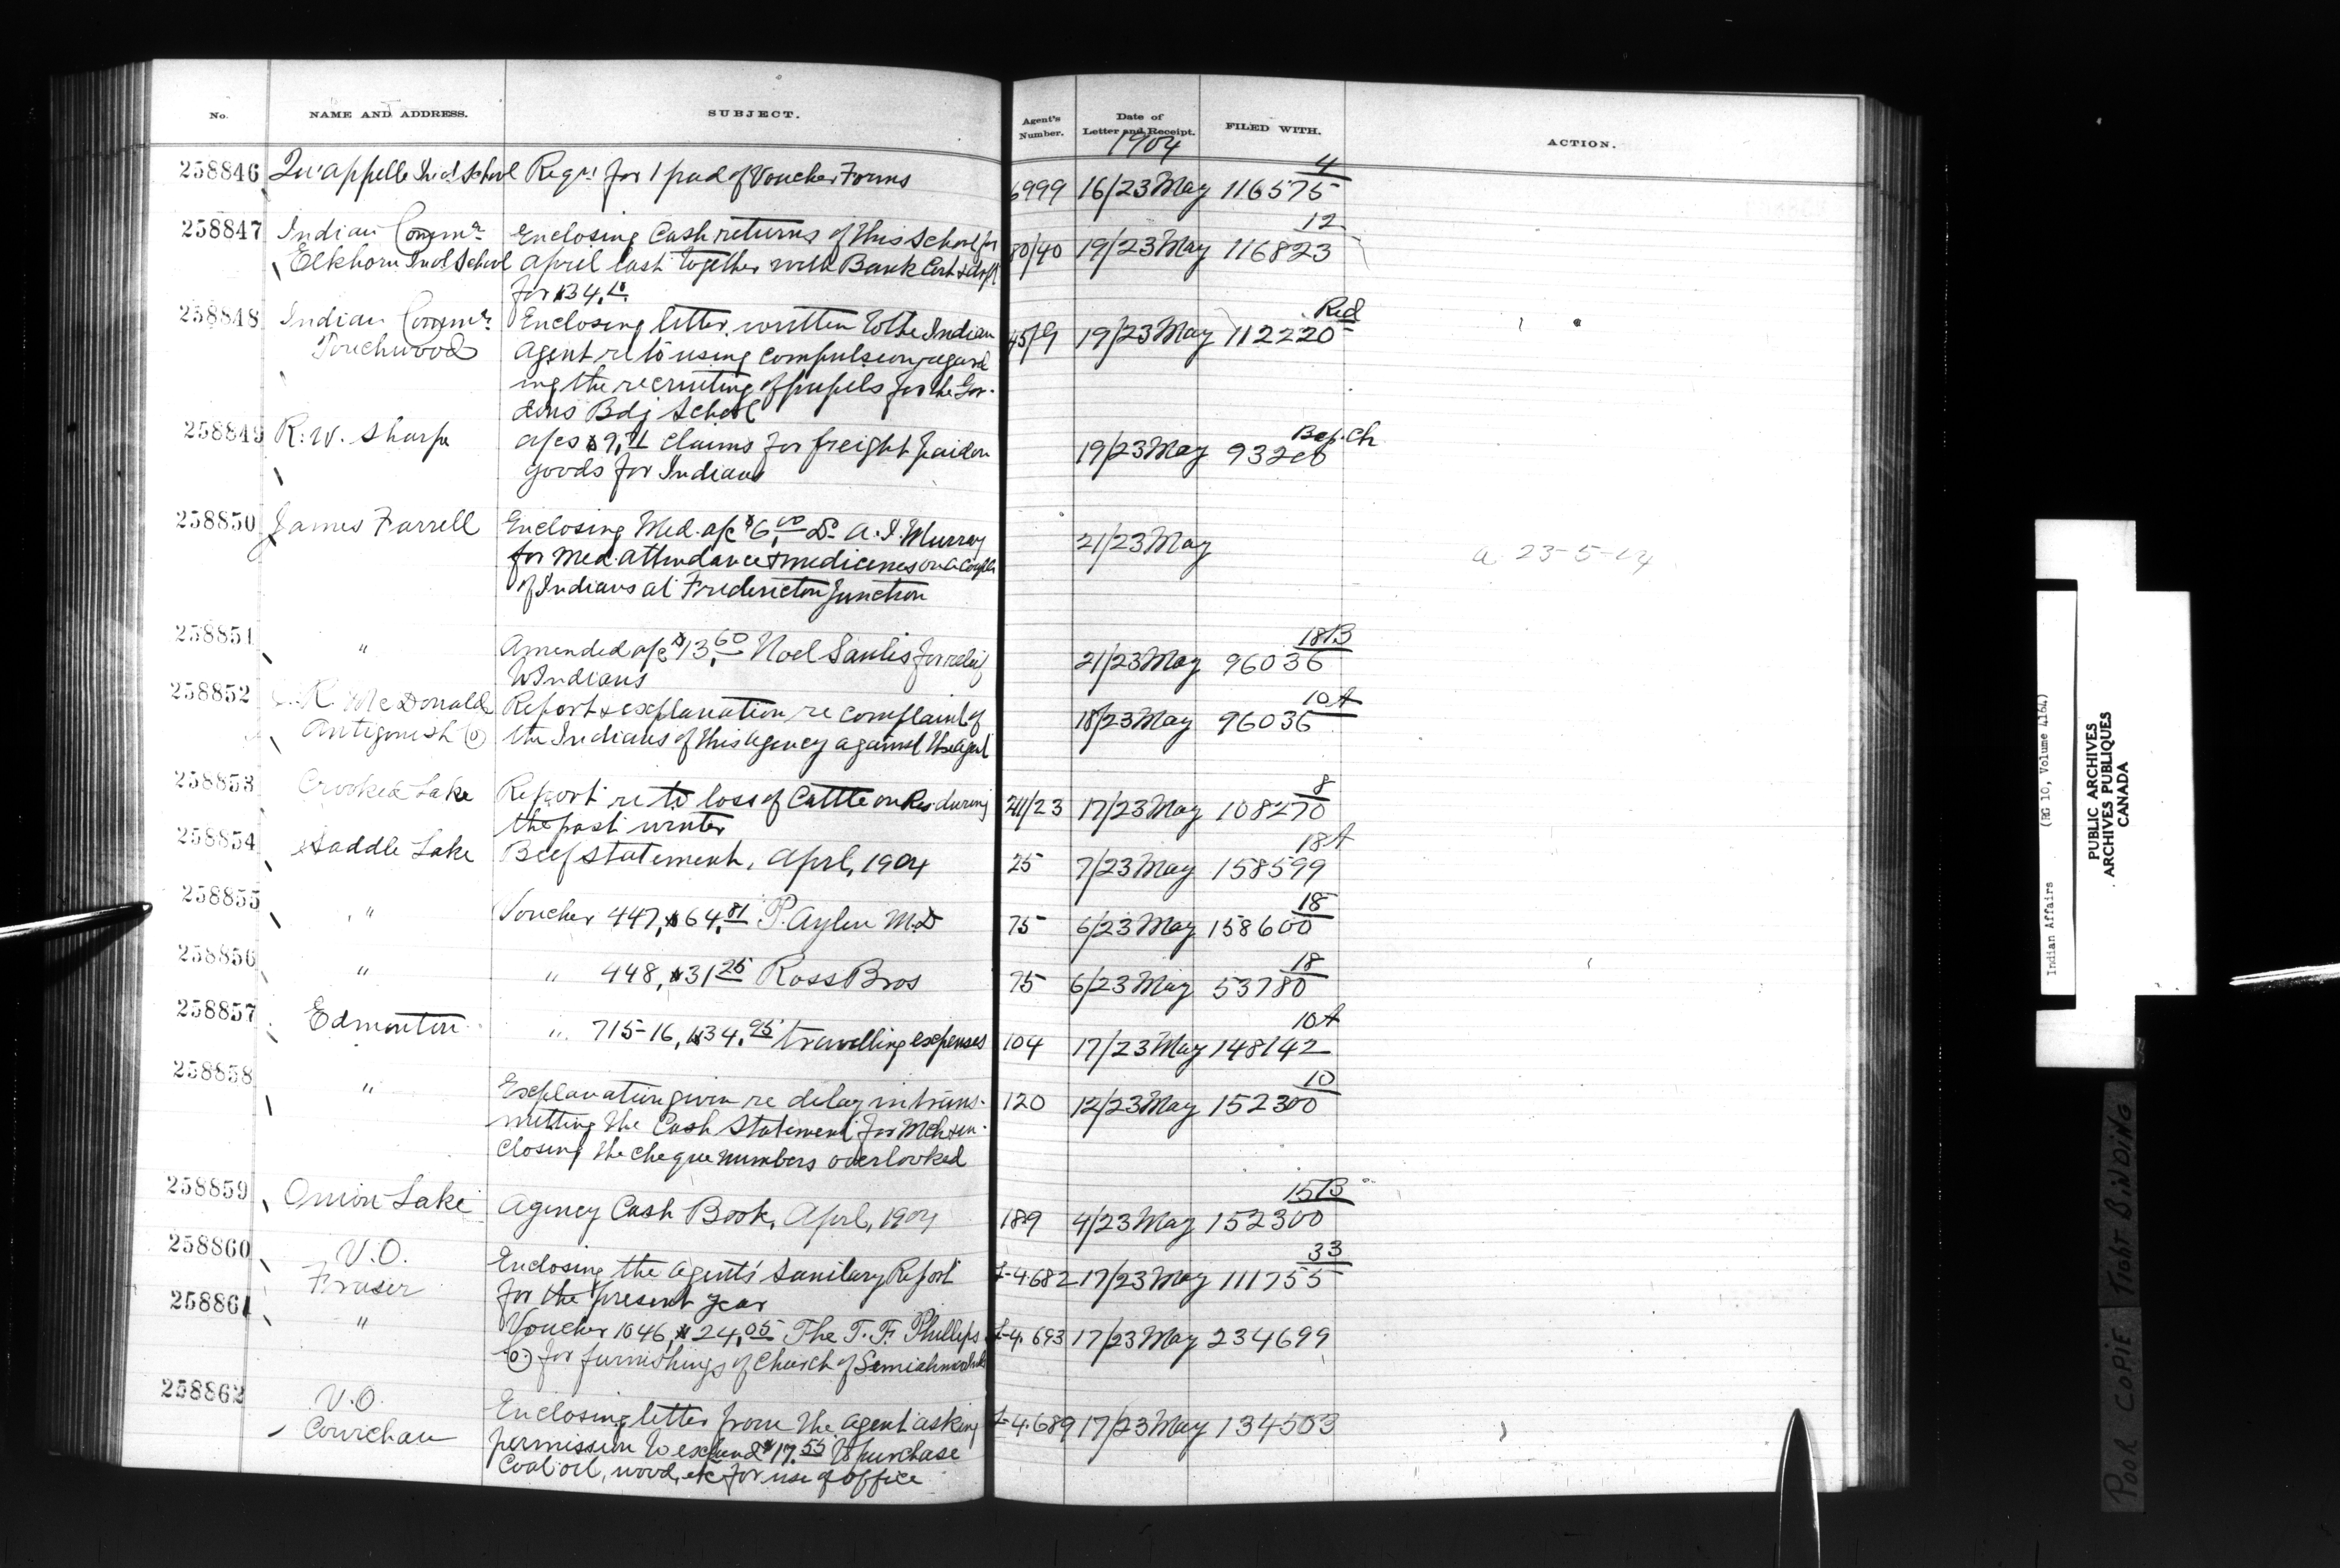 No. NAME AND ADDRESS. SUBJECT. Agent's Number. Date of Letter and Receipt. FILED WITH. ACTION.
1904
258846 Qu'appelle Ind School Reqn for 1 pad of Voucher Forms 6999 16/23 May 116575 4
258847 Indian Commr Enclosing Cash returns of this School for 80/40 19/23 May 116823 12
Elkhorn Indl School April last together with Bank Cert & draft
for $34.
258848 Indian Commr. Enclosing letter written to the Indian 45/9 19/23 May 112220 Red
Touchwood Agent re to using compulsion regard
ing the recruiting of pupils for the Gor-
dons Bdg School
258849 R. W. Sharpe a/cs $9.71 claims for freight paid on 19/23 May 932 Bap. Ch
goods for Indians
258850 James Farrell Enclosing Med. a/c $6.00 Dr A. I. Murray 21/23 May a 23-5-04
for Med. attendance & medicines on a couple
of Indians at Fredericton Junction
258851 " Amended a/c $13.60 Noel Saulis for relief 21/23 May 96036 18B
to Indians
258852 R. McDonald Report & explanation re complaint of 18/23 May 96036 10A
Antigonish Co the Indians of this Agency against the Agent
258853 Crooked Lake Report re to loss of Cattle on Res. during 241/23 17/23 May 108270 8
the past winter
258854 Saddle Lake Beef statement, April, 1904 25 7/23 May 158599 18A
258855 " Voucher 447, $64.81 P. Aylen M.D 75 6/23 May 158600 18
258856 " " 448, $31.25 Ross Bros 75 6/23 May 53780 18
258857 Edmonton " 715-16, $34.95 travelling expenses 104 17/23 May 148142 10A
258858 " Explanation given re delay in trans- 120 12/23 May 152300 10
mitting the Cash Statement for Mch & en-
closing the cheque numbers overlooked
258859 Onion Lake Agency Cash Book, April, 1904 189 4/23 May 152300 15B
258860 V.O. Enclosing the Agent's Sanitary Report L-4682 17/23 May 111755 33
Fraser for the present year
258861 " Voucher 1046, $24.05 The T. F. Phillips L-4.693 17/23 May 234699
Co) for furnishings of Church of Semiahmoo
258862 V.O. Enclosing letter from the Agent asking L-4.689 17/23 May 134503
Cowichan permission to expend $17.55 to purchase
Coal oil, wood, etc for use of office
Indian Affairs (RG 10, Volume 4164)
PUBLIC ARCHIVES
ARCHIVES PUBLIQUES
CANADA
POOR COPIE TIGHT BINDING